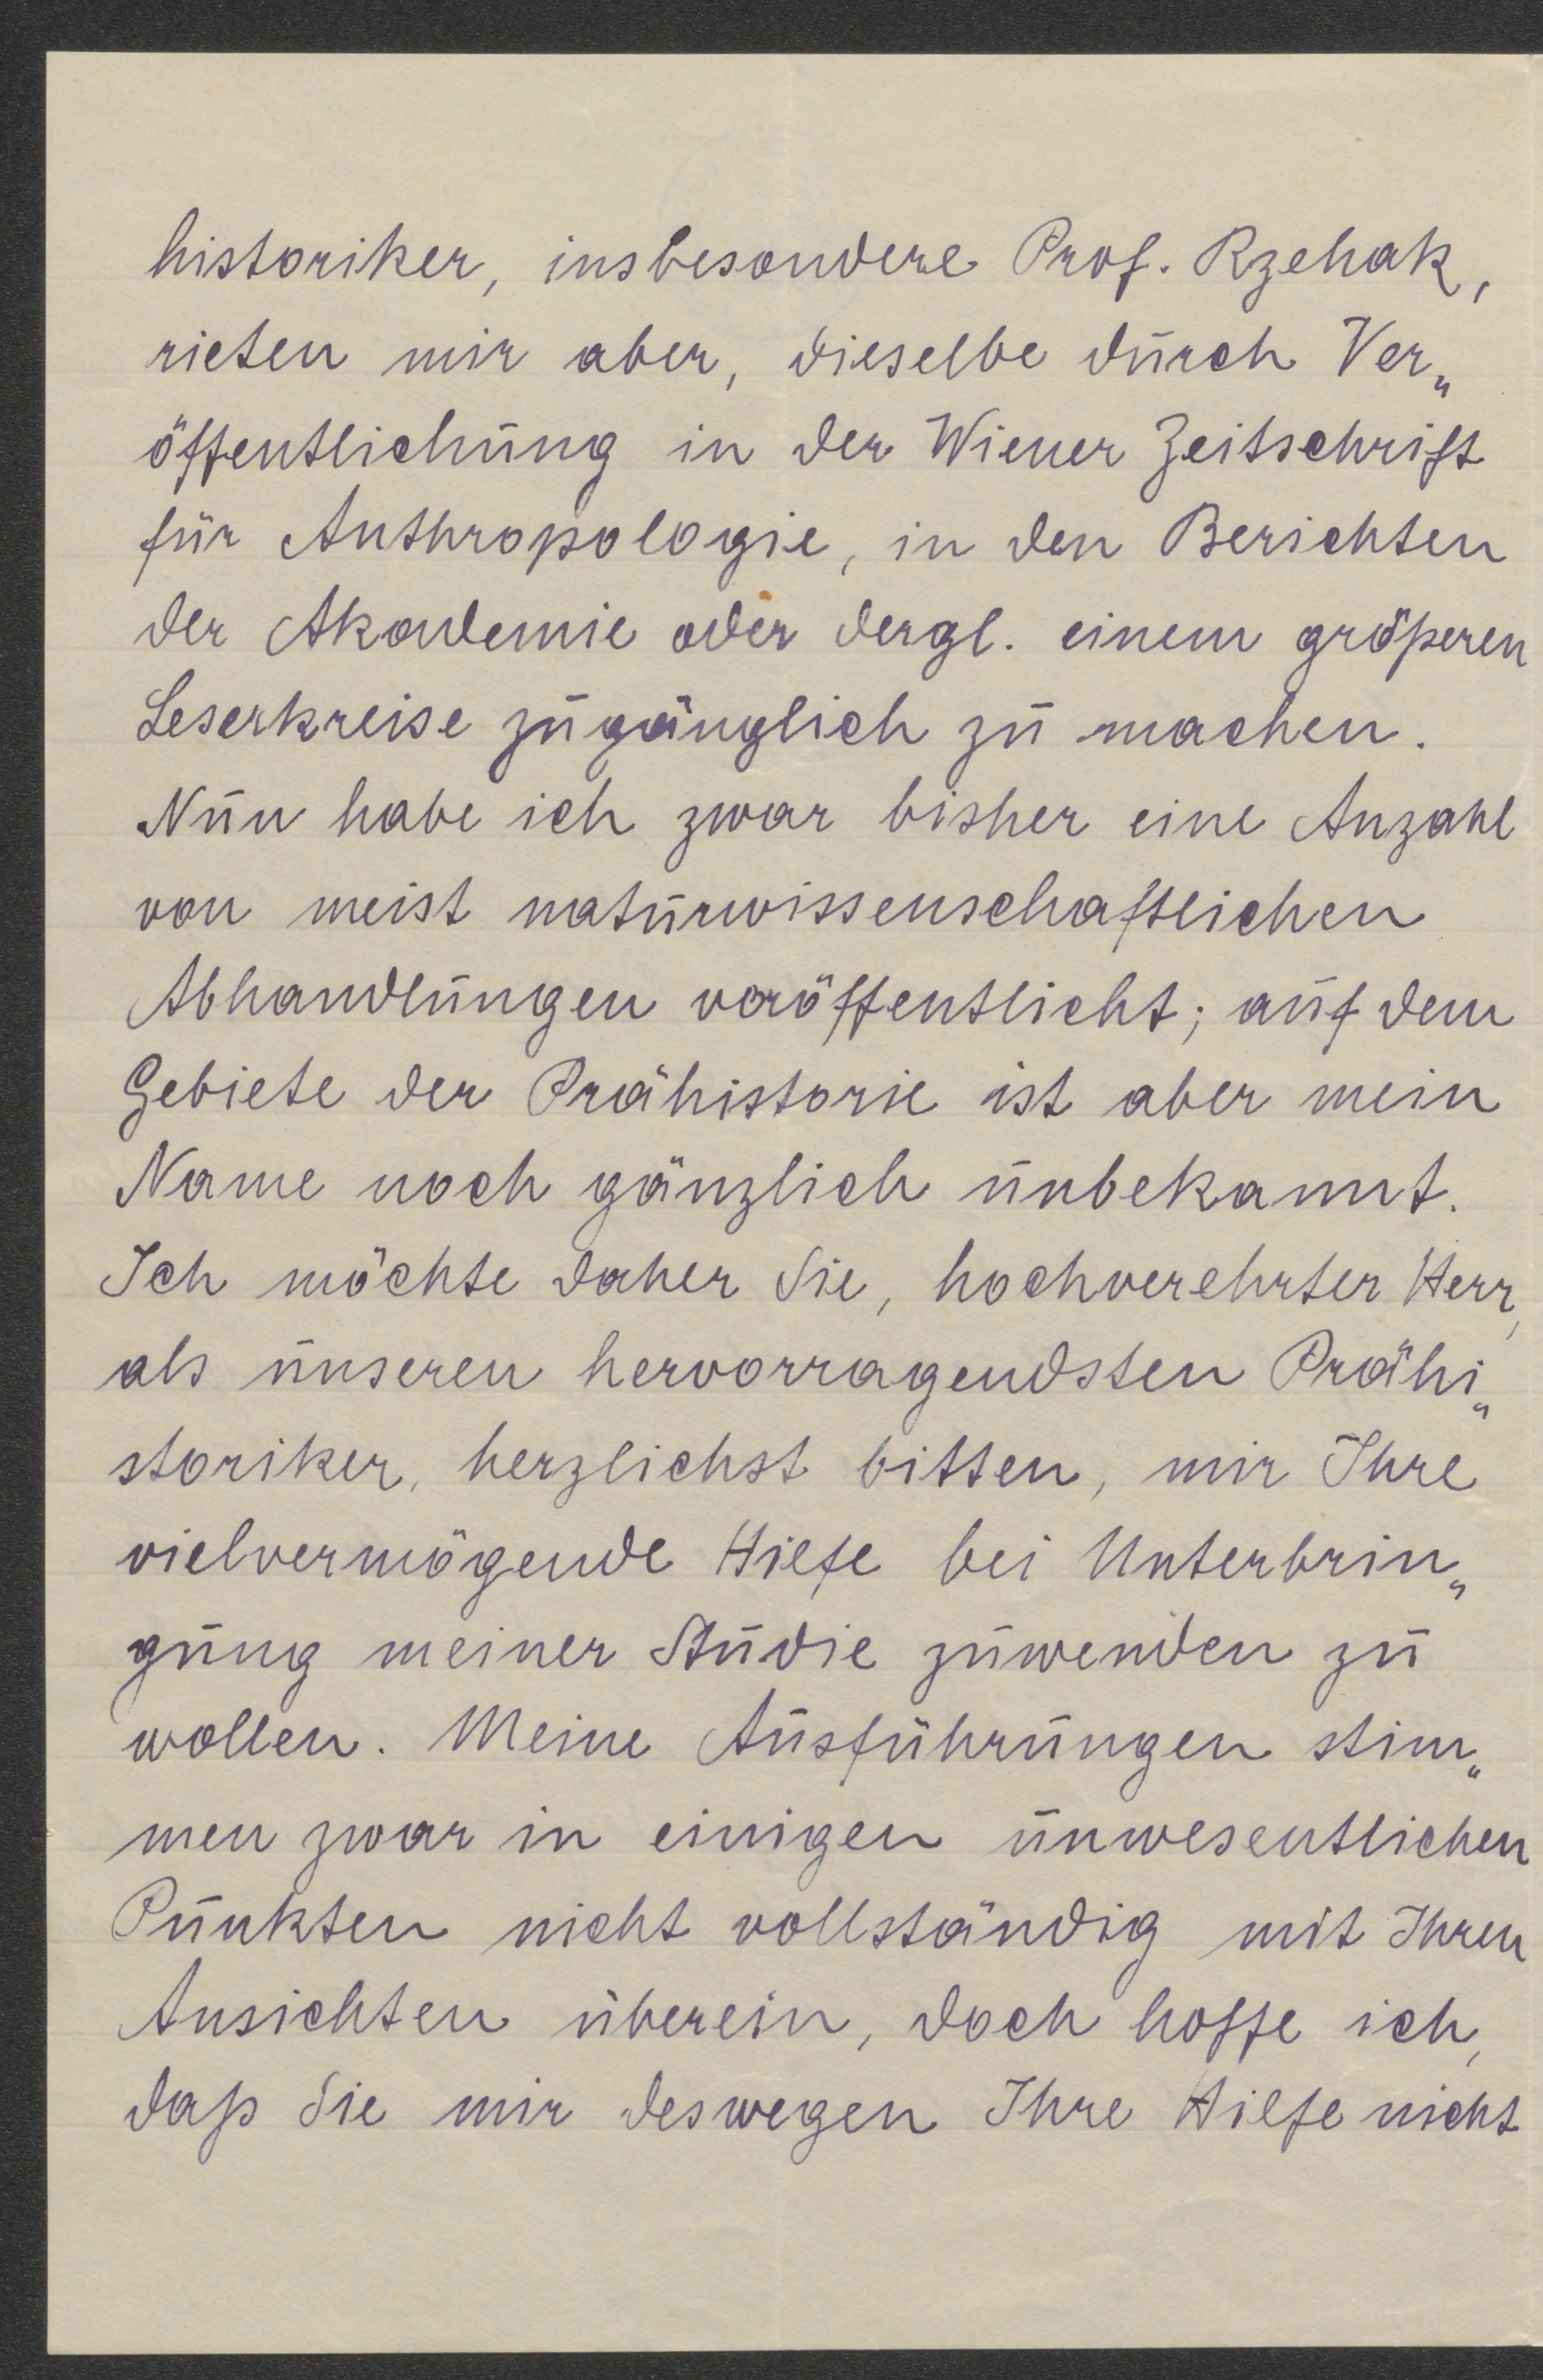 historiker, insbesondere Prof. Rzehak,
rieten mir aber, dieselbe durch Ver„
öffentlichung in der Wiener Zeitschrift
für Anthropologie, in den Berichten
der Akademie oder dergl. einem größeren
Leserkreise zugänglich zu machen.
Nun habe ich zwar bisher eine Anzahl
von meist naturwissenschaftlichen
Abhandlungen veröffentlicht; auf dem
Gebiete der Prähistorie ist aber mein
Name noch gänzlich unbekannt.
Ich möchte daher Sie, hochverehrter Herr,
als unseren hervorragendsten Prähi„
storiker, herzlichst bitten, mir Ihre
vielvermögende Hilfe bei Unterbrin„
gung meiner Studie zuwenden zu
wollen. Meine Ausführungen stim„
men zwar in einigen unwesentlichen
Punkten nicht vollständig mit Ihren
Ansichten überein, doch hoffe ich,
daß Sie mir deswegen Ihre Hilfe nicht